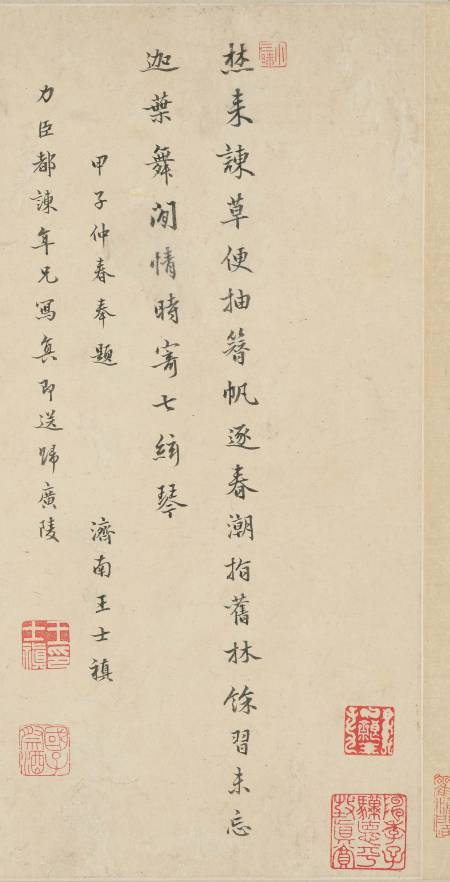 焚来諫草便抽簪帆逐春潮指舊林餘習未忘
迦葉舞閒情時寄七絃琴
甲子仲春奉題
力臣都諫年兄寫真即送歸廣陵
濟南王士禛
王士禛印
國子祭酒